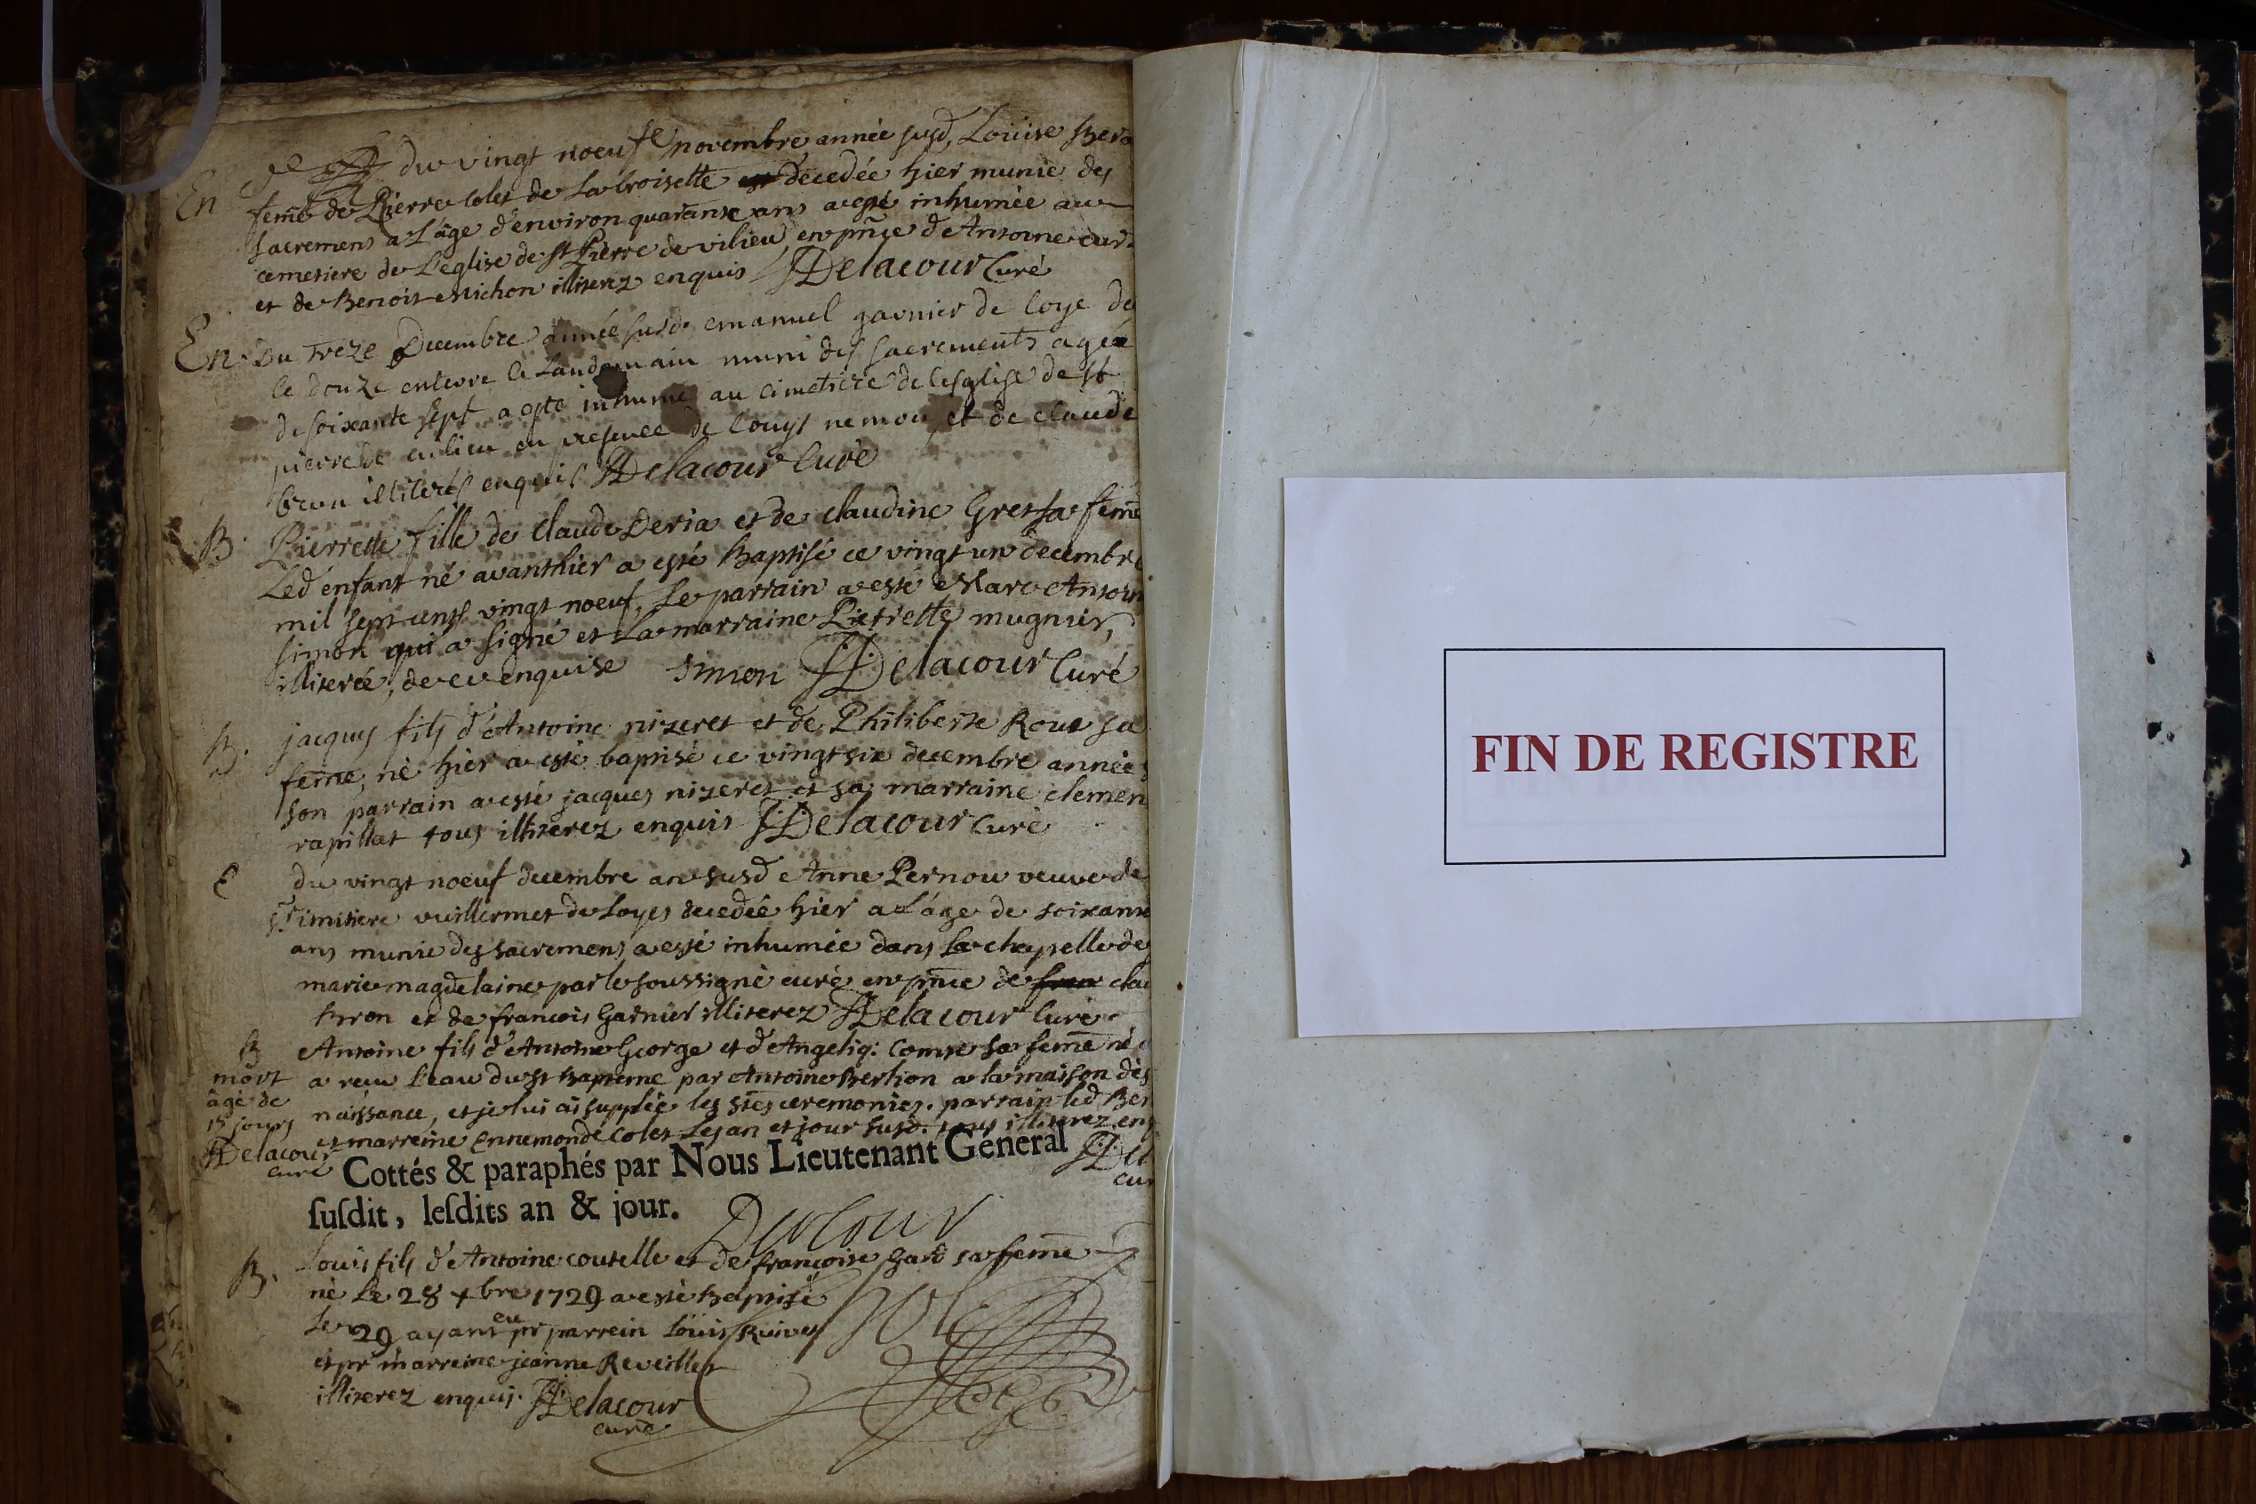 En du vingt noeuf novembre année susd, Loüise Bero
feme de Pierre Colet de La Croisette decedée hier munie des
sacremens a L'âge d'environ quarante ans a esté inhumée au
cemetiere de L'eglise de St Pierre de vilieu, en pnce d'Antoine
et de Benoit Michon illiterez enquis Delacour Curé
En Du treze Decembre année susd. emanuel garnier de loye de
le douze enterre le Landemain muni des sacrements agee
de soixante sept a este inhumé au cimetiere de lesglise de st
pierre de en presence de Louys nemou et de claude
illiterés enquis Delacour Curé
B. Pierrette fille de Claude Deria et de Claudine Gret sa feme
Led enfant né avanthier a esté Baptisé ce vingt un decembre
mil sept cents vingt noeuf, Le parrain a esté Marc Antoin
simon qui a signé et La marraine Pierrette mugnier,
illiterée, de ce enquise simon Delacour Curé
B. jacques fils d'Antoine nizeret et de Philiberte Roux sa
feme, né hier a esté baptisé ce vingt six decembre année s
son parrain a esté jacques nizeret et sa marraine clemen
rapillat tous illiterez enquis Delacour Curé
E du vingt noeuf decembre an susd Anne Pernou veuve de
vuillermet de Loyes decedée hier a L'âge de soixante
ans munie des sacremens a esté inhumée dans La chapelle de
marie magdelaine par le soussigné curé en pnce de clau
et de françois Garnier illiterez Delacour Curé
B Antoine fils d'Antoine George et d'Angeliq: Comte sa feme né
mort a receu L'eau du st Bapteme par Antoine Bertion a la maison dès
âgé de naissance, et je lui ai supplée les stes ceremonies. parrain led Ber
15 jours et marreine Ennemonde Colet Les an et jour susd. tous illiterez enq
Delacour Curé
Cottés & paraphés par Nous Lieutenant Géneral
Del
cur
susdit, lesdits an & jour.
B. Louis fils d'Antoine coutelle et de françoise Gard sa feme
né Le 28 xbre 1729 a esté Baptisé
Le 29 ayant eu pr parrein Loüis Ruivet
et pr marreine jeanne Reveillet
illiterez enquis. Delacour
curé
FIN DE REGISTRE